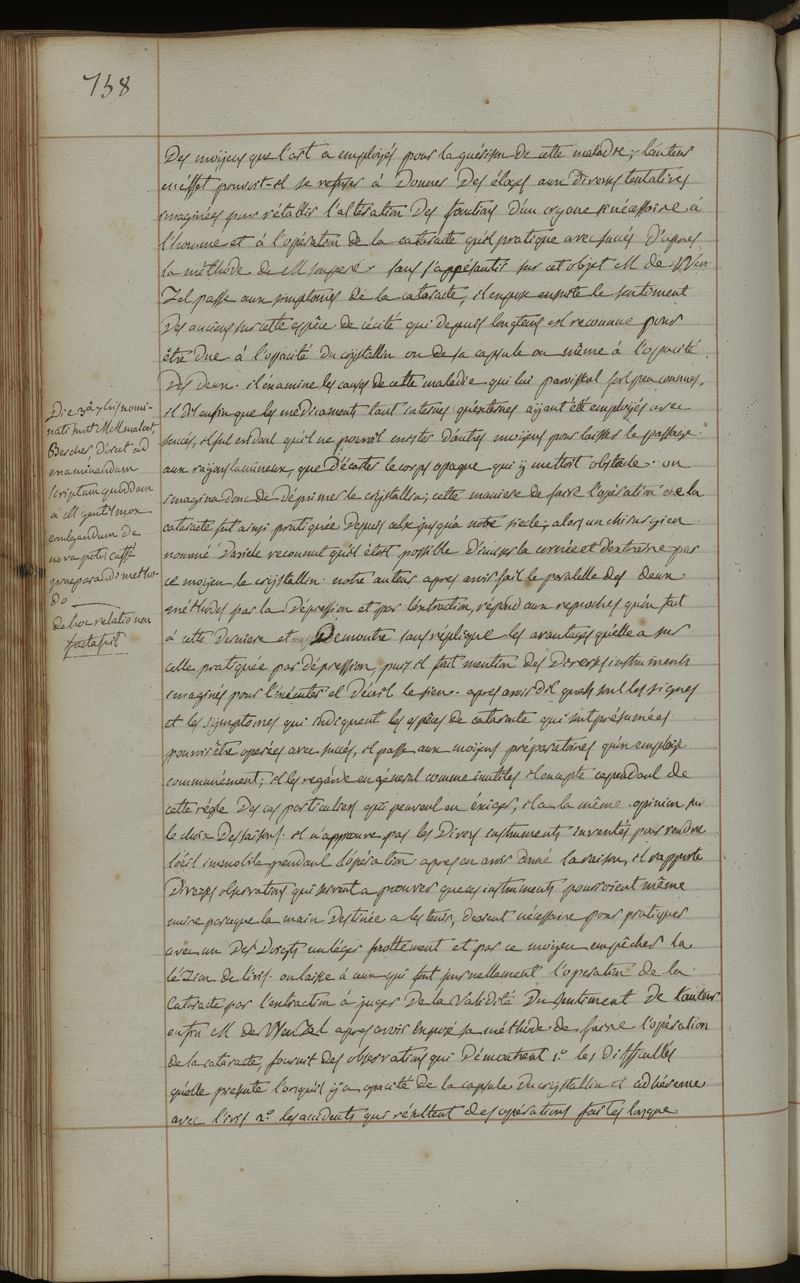 738
Des moÿens que l'art a emploÿés pour la guérison de cette maladie; l'auteur
en éffet pouvoit-il se refuser à donner des éloges aux diverses tentatives
imaginées pour rétablir l'altération des fonctions d'un organe si nécessaire à
l'homme et à l'opération de la cataracte qu'il pratique avec succés d'apres
la méthode de M son pere; sans s'appésentir sur cet objet M de Wen
Zel passe aux symptomes de la cataracte, il expose ensuite le sentiment
des anciens sur cette espêce de cécité qui depuis longtems est reconnue pour
être due à l'opacité du crystallin ou de sa capsule ou même à l'opacité
des deux. il éxamine les causes de cette maladie qui lui paroissent fort peu connues,
il dit enfin que les médicaments tant internes qu'externes aÿant été emploÿés avec
succés, il s'ensuit qu'il ne pouvoit exister d'autres moÿens pour laisser le passage
aux raÿons lumineux, que d'écarter le corps opaque qui ÿ mettoit obstacle. on
imagina donc de déprimer le crystallin; cette maniere de faire l'opération de la
cataracte fut ainsi pratiquée depuis celse jusqu'à notre siecle; alors un chirurgien
nommé Daviele reconnut qu'il étoit possible d'inciser la cornée et d'extraire par
ce moÿen le crÿstallin. notre auteur apres avoir fait le paralelle des deux
méthodes par la dépression et par l'éxtraction, répond aux reproches qu'on fait
à cette derniere et Démontre sans réplique les avantages qu'elle a sur
celle pratiquée par dépression, puis il fait mention des diverses instruments
imaginés pour l'éxécuter et décrit le sien. apres avoir dit quels sont les signes
et les sÿmptomes qui indiquent les espêces de cataracte qui sont présumées
pouvoir être operées avec succés, il passe aux moÿens préparatoires qu'on emploie
communément; il les regarde en général comme inutiles il excepte cependant de
cette régle des cas particuliers qui peuvent en éxiger, il a la même opinion sur
le choix des saisons. il n'approuve pas les divers instruments inventés pour rendre
l'oëil immobile pendant l'opération apres en avoir donné la raison, il rapporte
diverses observations qui servent a prouver que ces instruments pourroient même
nuire parceque la main destinée a les tenir, devient nécessaire pour pratiquer
avec un des doigts un léger frottement et par ce moÿen empêcher la
léZion de l'iris. on laisse à ceux qui font journellement l'operation de la
Cataracte par l'extraction à juger de la validité du sentiment de l'auteur
enfin M de WenZel apres avoir éxposé sa méthode de faire l'opération
de la cataracte, fournit des observations qui démontrent 1.° les difficultés
qu'elle presente lorsqu'il ÿ a opacité de la capsule du crystallin et adhérence
avec l'iris 2.° les accidents qui résultent des opérations faites lorsque
nominati sunt MM malvet
Bercher, dirat ad
examinandum
scriptum quoddam
à M gentil mox
emlgandum de
nova potus caffé
praeparandi metho-
do
de hoc relatio non
facta fuit